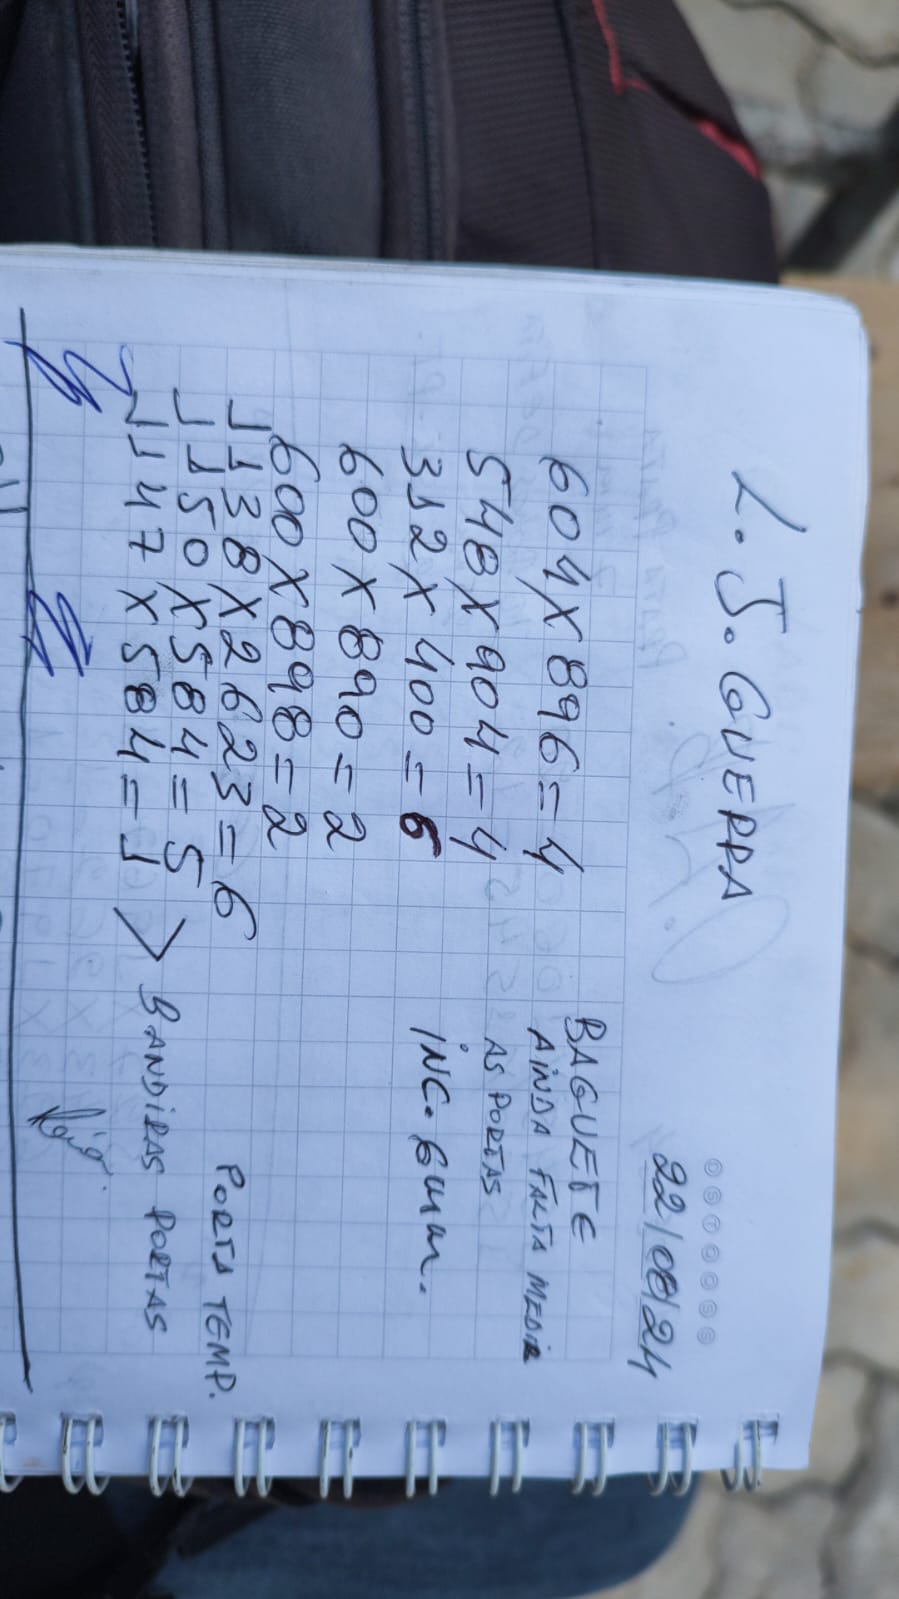 L.J. GUERRA
22/08/24
604 X 896 = 4 BAGUETE
AINDA FALTA MEDIR
548 X 904 = 4 AS PORTAS
312 X 400 = 6 INC. 6mm.
600 X 890 = 2
600 X 898 = 2
1138 X 2623 = 6 PORTA TEMP.
1150 X 584 = 5
1147 X 584 = 1 > BANDIRAS PORTAS